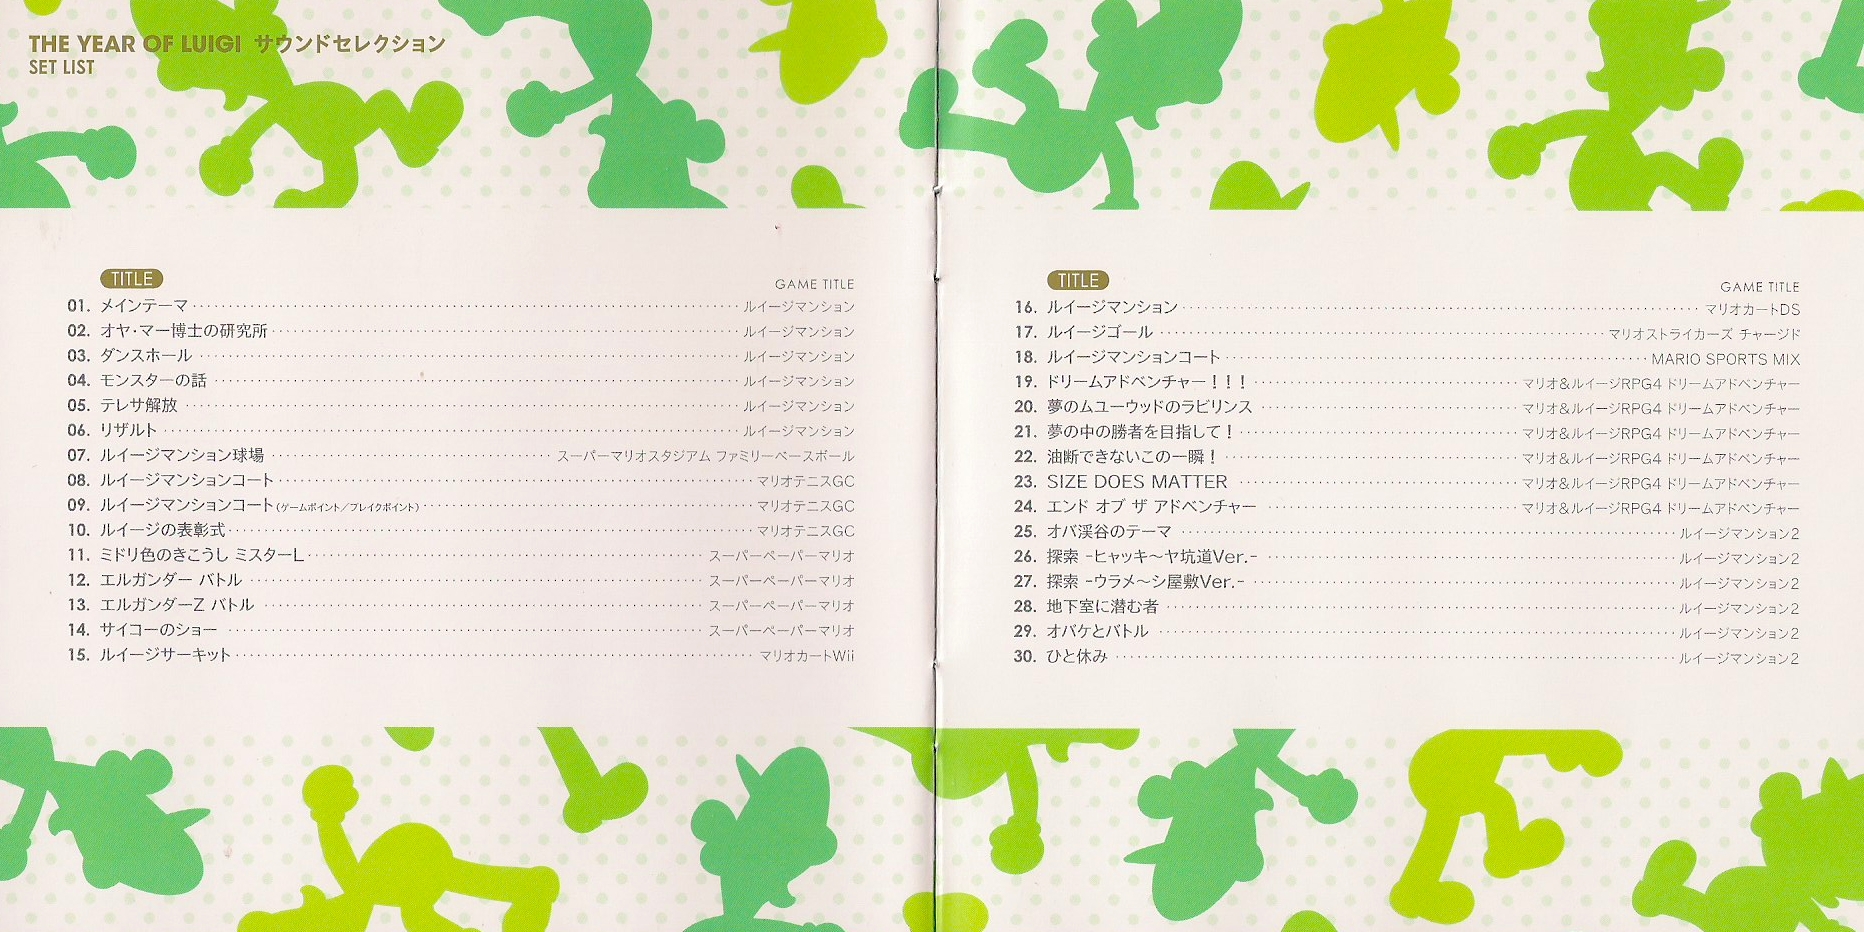 THE YEAR OF LUIGI サウンドセレクション
SET LIST
TITLE
GAME TITLE
01. メインテーマ ルイージマンション
02. オヤ・マー博士の研究所 ルイージマンション
03. ダンスホール ルイージマンション
04. モンスターの話 ルイージマンション
05. テレサ解放 ルイージマンション
06. リザルト ルイージマンション
07. ルイージマンション球場 スーパーマリオスタジアム ファミリーベースボール
08. ルイージマンションコート マリオテニスGC
09. ルイージマンションコート(ゲームポイント/ブレイクポイント) マリオテニスGC
10. ルイージの表彰式 マリオテニスGC
11. ミドリ色のきこうし ミスターL スーパーペーパーマリオ
12. エルガンダー バトル スーパーペーパーマリオ
13. エルガンダーZ バトル スーパーペーパーマリオ
14. サイコーのショー スーパーペーパーマリオ
15. ルイージサーキット マリオカートWii
TITLE
GAME TITLE
16. ルイージマンション マリオカートDS
17. ルイージゴール マリオストライカーズ チャージド
18. ルイージマンションコート MARIO SPORTS MIX
19. ドリームアドベンチャー!!! マリオ&ルイージRPG4 ドリームアドベンチャー
20. 夢のムユーウッドのラビリンス マリオ&ルイージRPG4 ドリームアドベンチャー
21. 夢の中の勝者を目指して! マリオ&ルイージRPG4 ドリームアドベンチャー
22. 油断できないこの一瞬! マリオ&ルイージRPG4 ドリームアドベンチャー
23. SIZE DOES MATTER マリオ&ルイージRPG4 ドリームアドベンチャー
24. エンド オブ ザ アドベンチャー マリオ&ルイージRPG4 ドリームアドベンチャー
25. オバ渓谷のテーマ ルイージマンション2
26. 探索 -ヒャッキ〜ヤ坑道Ver.- ルイージマンション2
27. 探索 -ウラメ〜シ屋敷Ver.- ルイージマンション2
28. 地下室に潜む者 ルイージマンション2
29. オバケとバトル ルイージマンション2
30. ひと休み ルイージマンション2